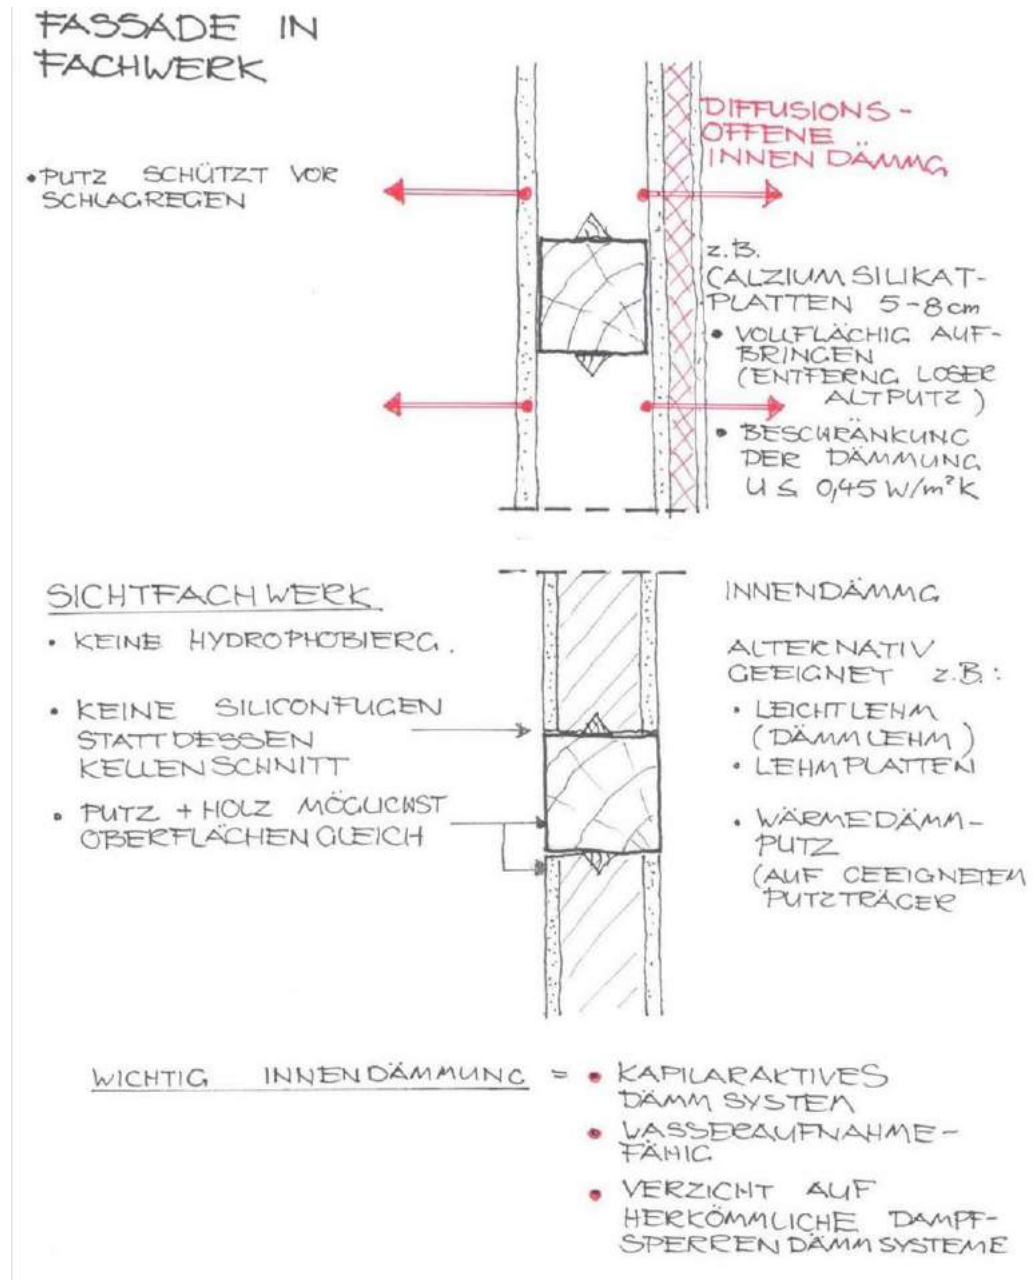 FASSADE IN
FACHWERK
• PUTZ SCHÜTZT VOR
SCHLAGREGEN
DIFFUSIONS-
OFFENE
INNENDÄMMG
z.B.
CALZIUMSILIKAT-
PLATTEN 5-8cm
• VOLLFLÄCHIG AUF-
BRINGEN
(ENTFERNG LOSER
ALTPUTZ)
• BESCHRÄNKUNG
DER DÄMMUNG
U ≤ 0,45 W/m²K
SICHTFACHWERK
• KEINE HYDROPHOBIERG.
• KEINE SILICONFUGEN
STATTDESSEN
KELLENSCHNITT
• PUTZ + HOLZ MÖGLICHST
OBERFLÄCHENGLEICH
INNENDÄMMG
ALTERNATIV
GEEIGNET z.B.:
• LEICHTLEHM
(DÄMMLEHM)
• LEHMPLATTEN
• WÄRMEDÄMM-
PUTZ
(AUF GEEIGNETEM
PUTZTRÄGER
WICHTIG INNENDÄMMUNG = • KAPILARAKTIVES
DÄMMSYSTEM
• WASSERAUFNAHME-
FÄHIG
• VERZICHT AUF
HERKÖMMLICHE DAMPF-
SPERRENDÄMMSYSTEME